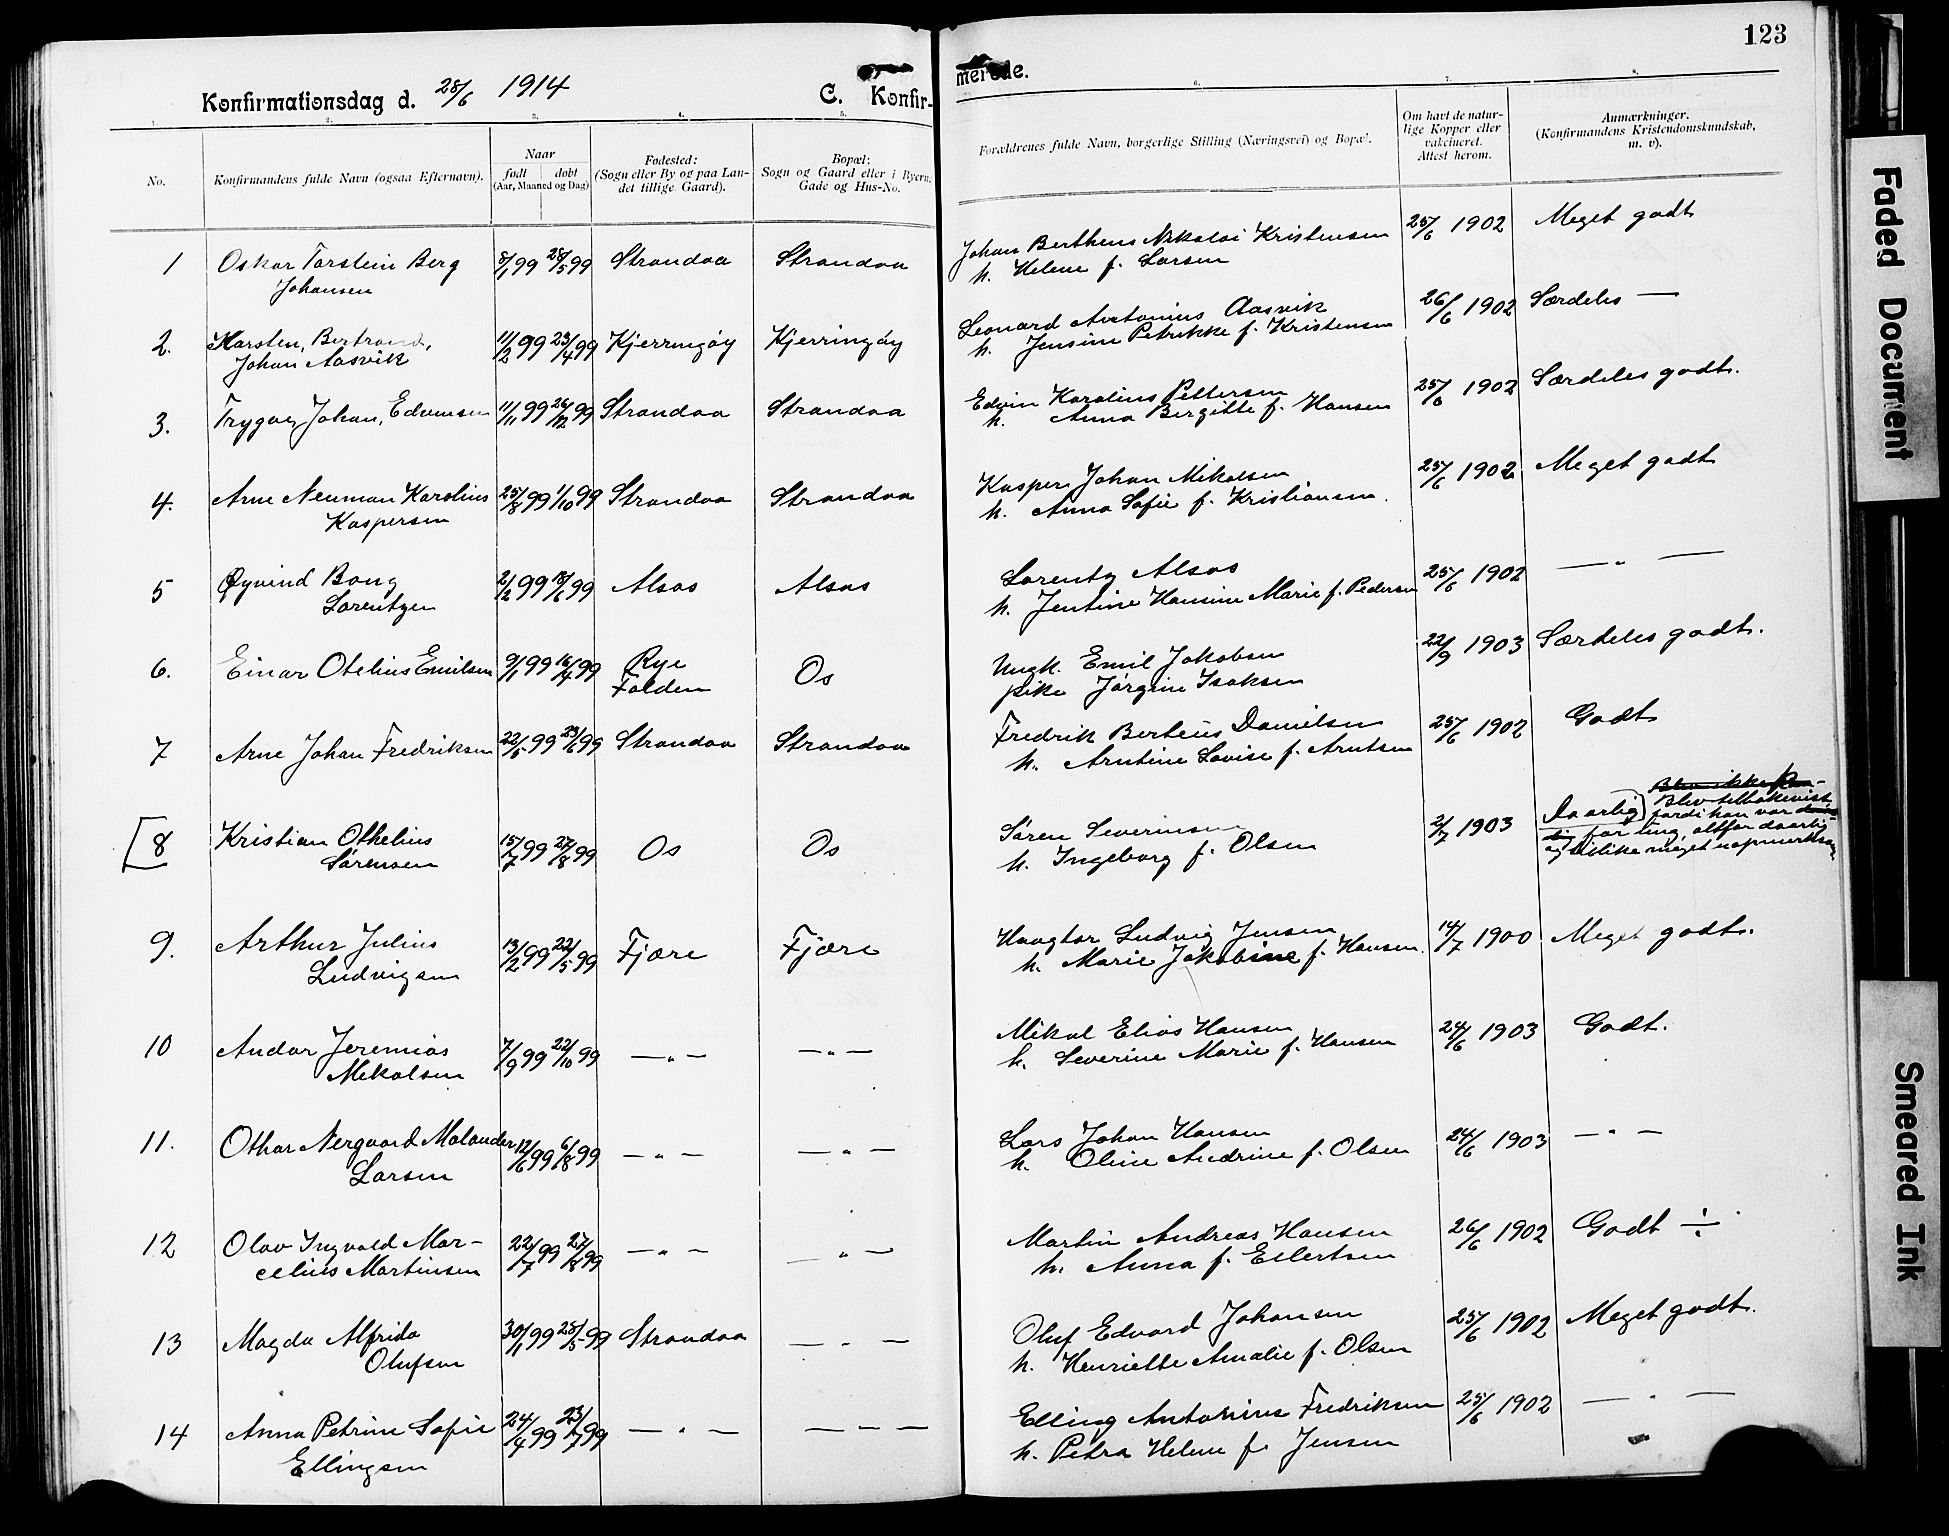 123
Konfirmationsdag d. 28/6 1914
C. Konfir-
merede.
1. 2. 3. 4. 5. 6. 7. 8.
No. Konfirmandens fulde Navn (ogsaa Efternavn). Naar født døbt (Aar, Maaned og Dag) Fødested: (Sogn eller By og paa Landet tillige Gaard). Bopæl: Sogn og Gaard eller i Byern. Gade og Hus-No. Forældrenes fulde Navn, borgerlige Stilling (Næringsvei) og Bopæl. Om havt de naturlige Kopper eller vakcineret. Attest herom. Anmærkninger. (Konfirmandens Kristendomskundskab, m. v).
1 Oskar Torstein Berg 8/1 99 28/5 99 Strandaa Strandaa Johan Berthens Nikolai Kristensen 25/6 1902 Meget godt
Johansen h. Helene f. Larsen
2. Karsten, Bertrand, 11/2 99 23/4 99 Kjerringøy Kjerringøy Leonard Antonius Aasvik 26/6 1902 Særdeles —
Johan Aasvik h. Jensine Petrikke f. Kristensen
3. Trygve Johan, Edvinsen 11/11 99 26/12 99 Strandaa Strandaa Edvin Karolius Pettersen 25/6 1902 Særdeles godt.
h. Anna Bergitte f. Hansen
4. Arne Neuman Karolius 25/8 99 1/10 99 Strandaa Strandaa Kasper Johan Mikalsen 25/6 1902 Meget godt
Kaspersen h. Anna Sofie f. Kristiansen.
5 Øyvind Bang 2/2 99 18/6 99 Alsos Alsos Lorentz Alsos 25/6 1902 — " —
Lorentzen h. Jentine Hansine Marie f. Pedersen
6. Einar Otelius Emilsen 9/1 99 16/4 99 Rye Os Ungk. Emil Jakobsen 22/9 1903 Særdeles godt.
Folden pike Jørgine Isaksen
7 Arne Johan Fredriksen 22/5 99 29/6 99 Strandaa Strandaa Fredrik Berteus Danielsen 25/6 1902 Godt
h. Arntine Lovise f. Arntsen
[8 Kristian Othelius 15/7 99 27/8 99 Os Os Søren Severinsen 2/7 1903 Daarlig
Sørensen h. Ingeborg f. Olsen
Blev ikke
Blev tilbakevist
fordi han var
for ung, altfor daarlig
og tillike meget uopmerksom
9. Arthur Julius 13/2 99 22/5 99 Fjære Fjære Haagtor Ludvig Jensen 14/7 1900 Meget godt.
Ludvigsen h. Marie Jakobine f. Hansen.
10 Andor Jeremias 7/9 99 22/10 99 — " — — " — Mikal Elias Hansen 24/6 1903 Godt.
Mekalsen h. Severine Marie f. Hansen
11. Othar Nergaard Molander 12/6 99 6/8 99 — " — — " — Lars Johan Hansen 24/6 1903 — " —
Larsen h. Oline Andrine f. Olsen
12 Olav Ingvald Mar- 22/7 99 27/8 99 — " — — " — Martin Andreas Hansen 26/6 1902 Godt ÷
celius Martinsen h. Anna f. Ellertsen
13 Magda Alfrida 30/1 99 28/5 99 Strandaa — " — Oluf Edvard Johansen 25/6 1902 Meget godt.
Olufsen h. Henriette Amalie f. Olsen
14 Anna Petrine Sofie 24/4 99 23/7 99 — " — — — — Elling Antonius Fredriksen 25/6 1902 — " —
Ellingsen h. Petra Helene f. Jensen
Faded Document
Smeared Ink